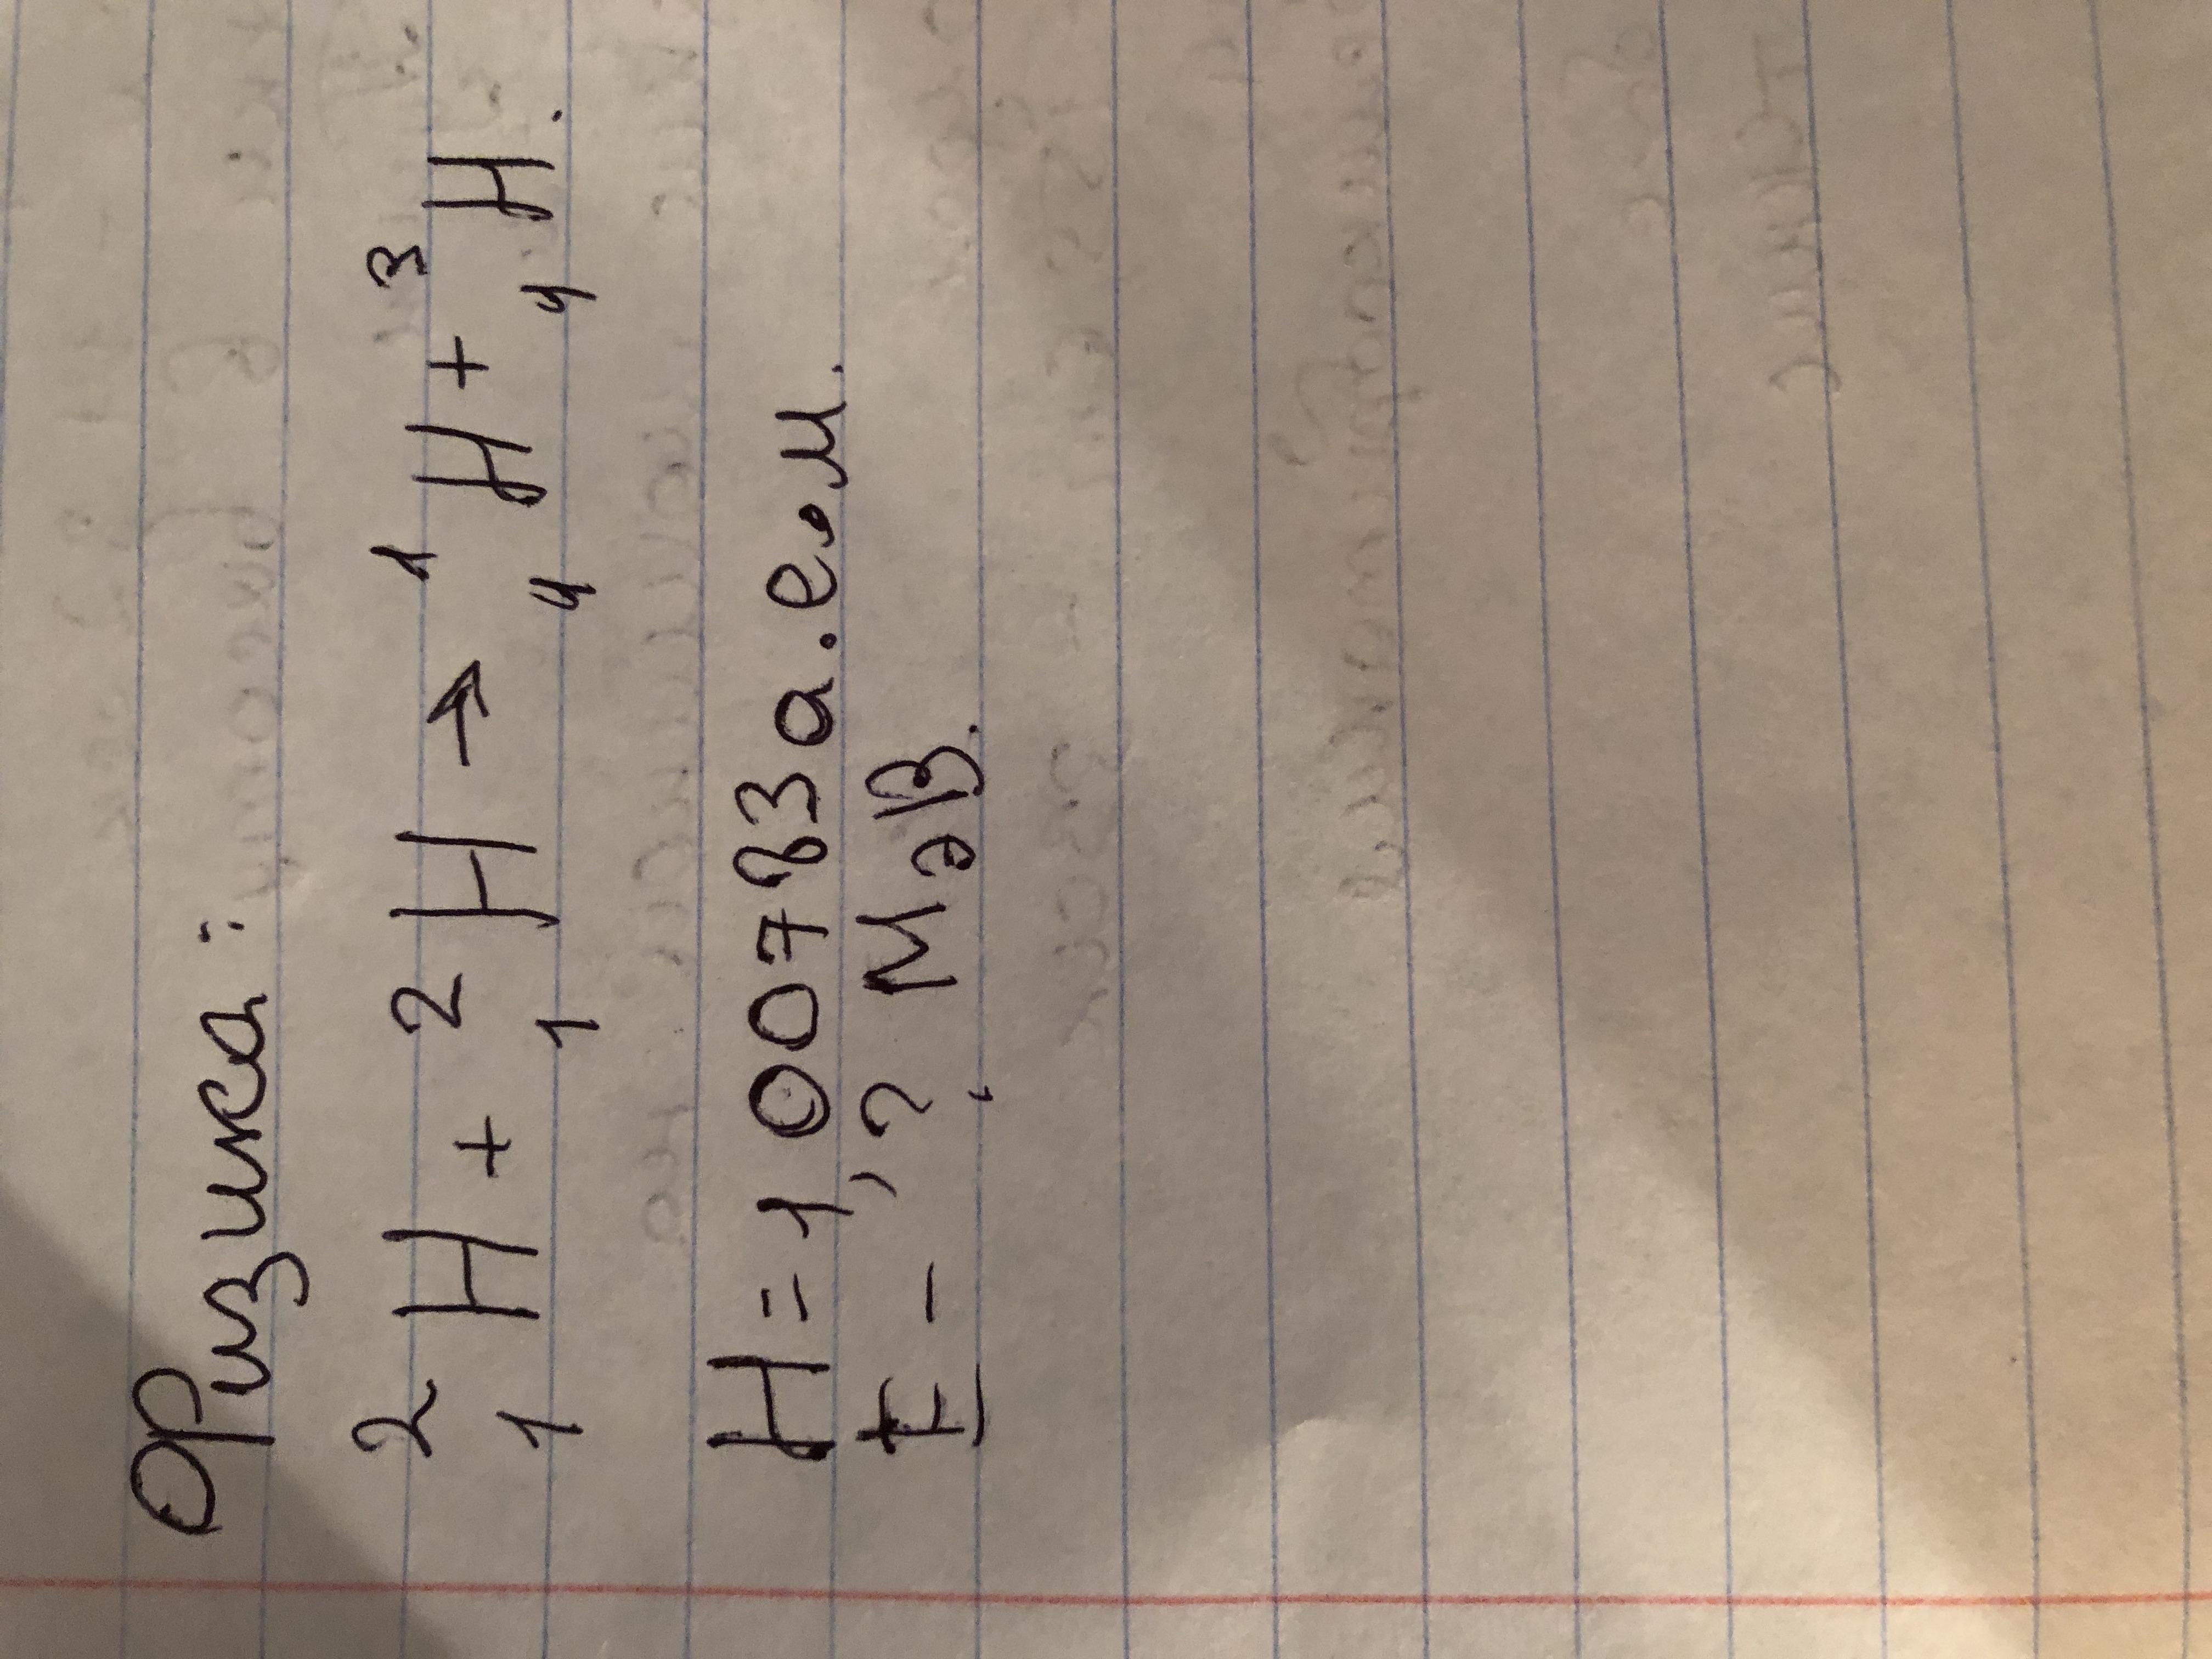 Физика:
²₁H + ²₁H → ¹₄H + ³₄H.
H = 1,00783 а.е.м.
E - ? МэВ.